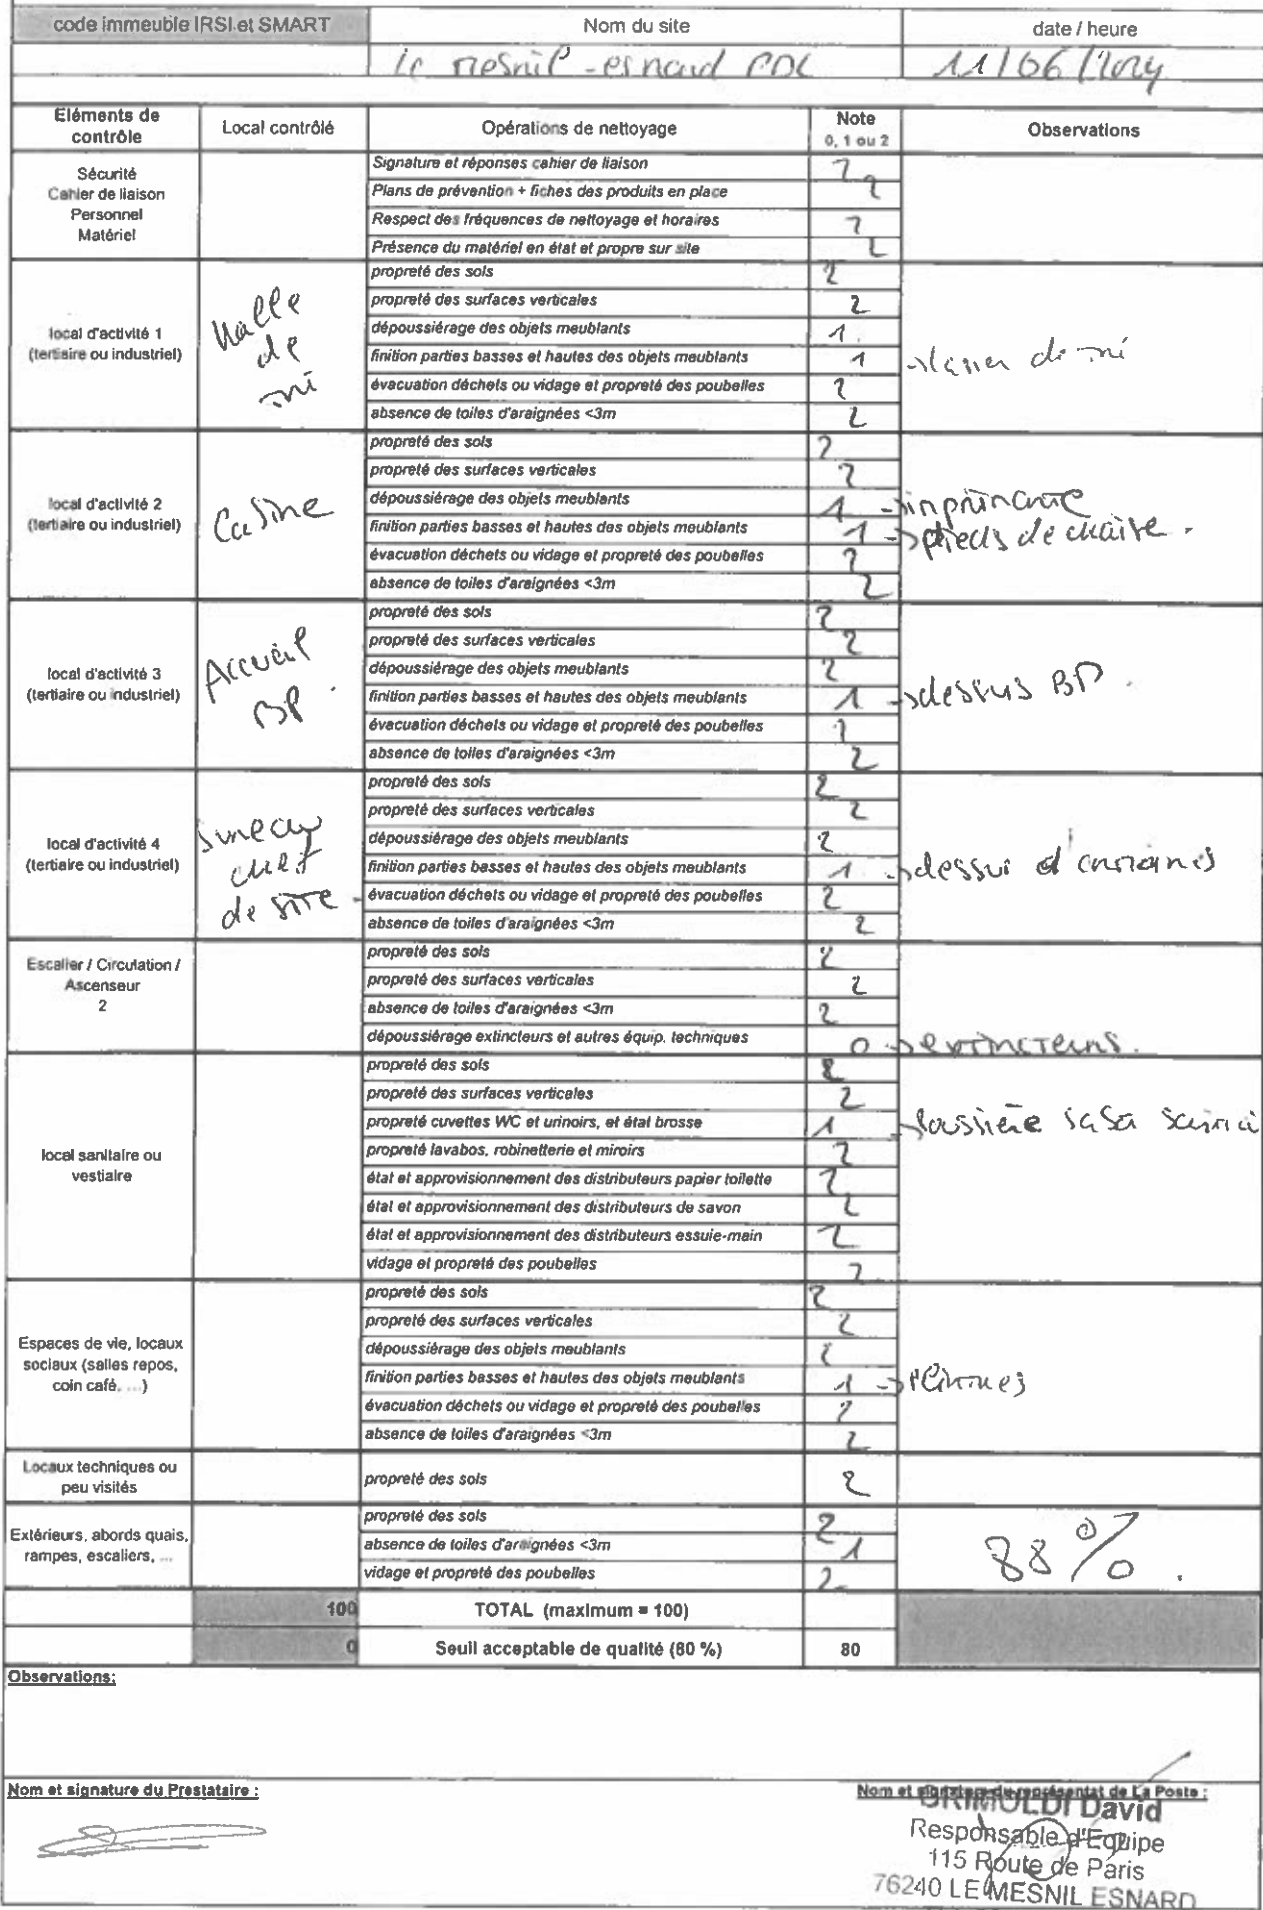 code immeuble IRSI et SMART Nom du site date / heure
le mesnil-esnard PDC 11/06/2024
Eléments de contrôle Local contrôlé Opérations de nettoyage Note 0, 1 ou 2 Observations
Sécurité
Cahier de liaison
Personnel
Matériel
Signature et réponses cahier de liaison 2
Plans de prévention + fiches des produits en place 2
Respect des fréquences de nettoyage et horaires 2
Présence du matériel en état et propre sur site 2
local d'activité 1
(tertiaire ou industriel)
de
propreté des sols 2
propreté des surfaces verticales 2
dépoussiérage des objets meublants 1
finition parties basses et hautes des objets meublants 1
évacuation déchets ou vidage et propreté des poubelles 2
absence de toiles d'araignées <3m 2
local d'activité 2
(tertiaire ou industriel)
propreté des sols 2
propreté des surfaces verticales 2
dépoussiérage des objets meublants 1 -> imprimante
finition parties basses et hautes des objets meublants 1 -> pieds de chaise.
évacuation déchets ou vidage et propreté des poubelles 2
absence de toiles d'araignées <3m 2
local d'activité 3
(tertiaire ou industriel)
Accueil
BP.
propreté des sols 2
propreté des surfaces verticales 2
dépoussiérage des objets meublants 2
finition parties basses et hautes des objets meublants 1 -> dessus BP.
évacuation déchets ou vidage et propreté des poubelles 2
absence de toiles d'araignées <3m 2
local d'activité 4
(tertiaire ou industriel)
chef
de site
propreté des sols 2
propreté des surfaces verticales 2
dépoussiérage des objets meublants 2
finition parties basses et hautes des objets meublants 1 -> dessus
évacuation déchets ou vidage et propreté des poubelles 2
absence de toiles d'araignées <3m 2
Escalier / Circulation /
Ascenseur
2
propreté des sols 2
propreté des surfaces verticales 2
absence de toiles d'araignées <3m 2
dépoussiérage extincteurs et autres équip. techniques 0 -> extincteurs.
local sanitaire ou
vestiaire
propreté des sols 2
propreté des surfaces verticales 2
propreté cuvettes WC et urinoirs, et état brosse 1 -> poussière
propreté lavabos, robinetterie et miroirs 2
état et approvisionnement des distributeurs papier toilette 2
état et approvisionnement des distributeurs de savon 2
état et approvisionnement des distributeurs essuie-main 2
vidage et propreté des poubelles 2
Espaces de vie, locaux
sociaux (salles repos,
coin café, ...)
propreté des sols 2
propreté des surfaces verticales 2
dépoussiérage des objets meublants 2
finition parties basses et hautes des objets meublants 1 ->
évacuation déchets ou vidage et propreté des poubelles 2
absence de toiles d'araignées <3m 2
Locaux techniques ou
peu visités
propreté des sols 2
Extérieurs, abords quais,
rampes, escaliers, ...
propreté des sols 2
absence de toiles d'araignées <3m 1
vidage et propreté des poubelles 2
88%.
100 TOTAL (maximum = 100)
0 Seuil acceptable de qualité (80 %) 80
Observations:
Nom et signature du Prestataire :
Nom et signature du représentat de La Poste :
GRIMOLDI David
Responsable d'Equipe
115 Route de Paris
76240 LE MESNIL ESNARD